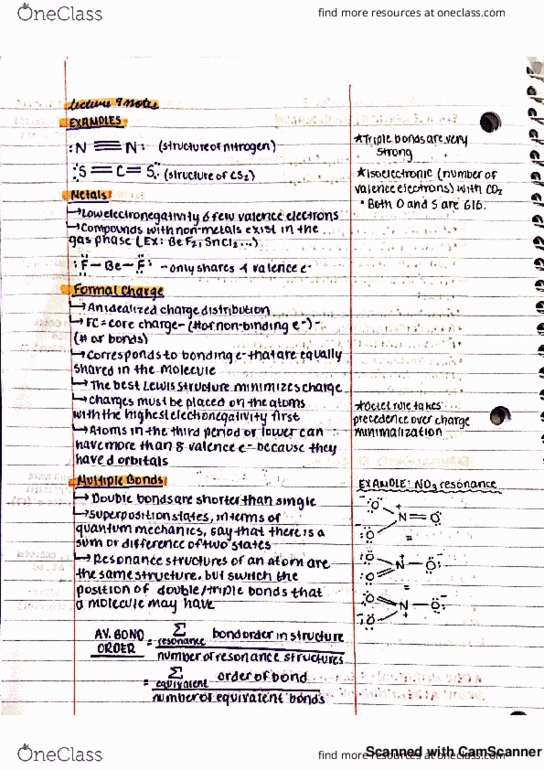 OneClass
find more resources at oneclass.com
Lecture 9 Notes
EXAMPLES
:N≡N: (structure of nitrogen)
:S=C=S: (structure of CS₂)
*Triple bonds are very
strong
*Isoelectronic (number of
valence electrons) with CO₂
• Both O and S are G16.
Metals
→Low electronegativity & few valence electrons
→Compounds with non-metals exist in the
gas phase (EX: BeF₂, SnCl₂...)
:F-Be-F: -only shares 4 valence e⁻
Formal Charge
→An idealized charge distribution
→FC=core charge-(# of non-binding e⁻)-
(# of bonds)
→Corresponds to bonding e⁻ that are equally
shared in the molecule
→The best Lewis structure minimizes charge
→charges must be placed on the atoms
with the highest electronegativity first
→Atoms in the third period or lower can
have more than 8 valence e⁻ because they
have d orbitals
*Octet rule takes
precedence over charge
minimalization
Multiple Bonds
→Double bonds are shorter than single
→superposition states, in terms of
quantum mechanics, say that there is a
sum or difference of two states
→Resonance structures of an atom are
the same structure, but switch the
position of double/triple bonds that
a molecule may have
AV. BOND ORDER = Σ resonance bond order in structure
number of resonance structures
= Σ equivalent order of bond
number of equivalent bonds
EXAMPLE: NO₃ resonance
:O:⁻ N⁺=O :O:⁻
=
:O:⁻ N⁺-O:⁻ :O
=
:O N⁺-O:⁻ :O:⁻
OneClass
find more resources at oneclass.com
Scanned with CamScanner